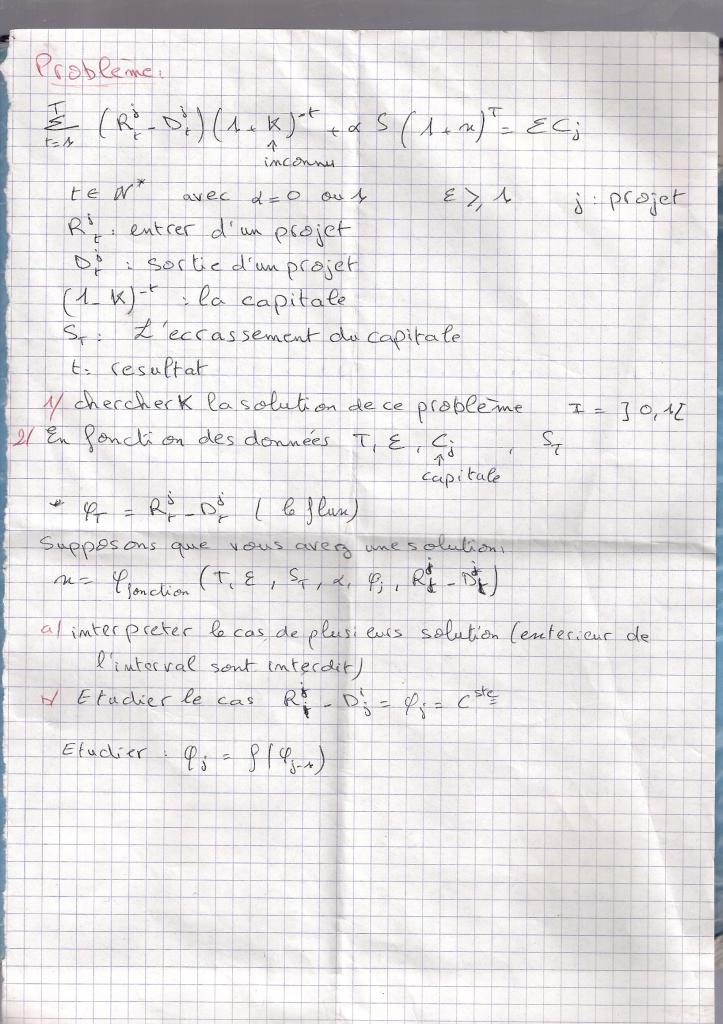 Problème:
T Σ t=1 (R_t^j - D_t^j)(1+K)^-t + α S (1+x)^T = ε C_j
↑
inconnu
t ∈ N* avec α=0 ou 1 ε ⩾ 1 j: projet
R_t^j : entrer d'un projet
D_t^j : sortie d'un projet
(1-K)^-t : la capitale
S_T : L'ecrassement du capitale
t: resultat
1/ chercher K la solution de ce problème I = ]0,1[
2/ En fonction des données T, ε, C_j, S_T
↑
capitale
* φ_T = R_t^j - D_t^j (le flux)
Supposons que vous avez une solution,
x = φ_fonction (T, ε, S_T, α, φ_j, R_t^j - D_t^j)
a/ interpreter le cas de plusieurs solution (enterieur de
l'interval sont interdit)
Etudier le cas R_t^j - D_j^i = φ_j = C^ste
Etudier : φ_j = f(φ_j-1)